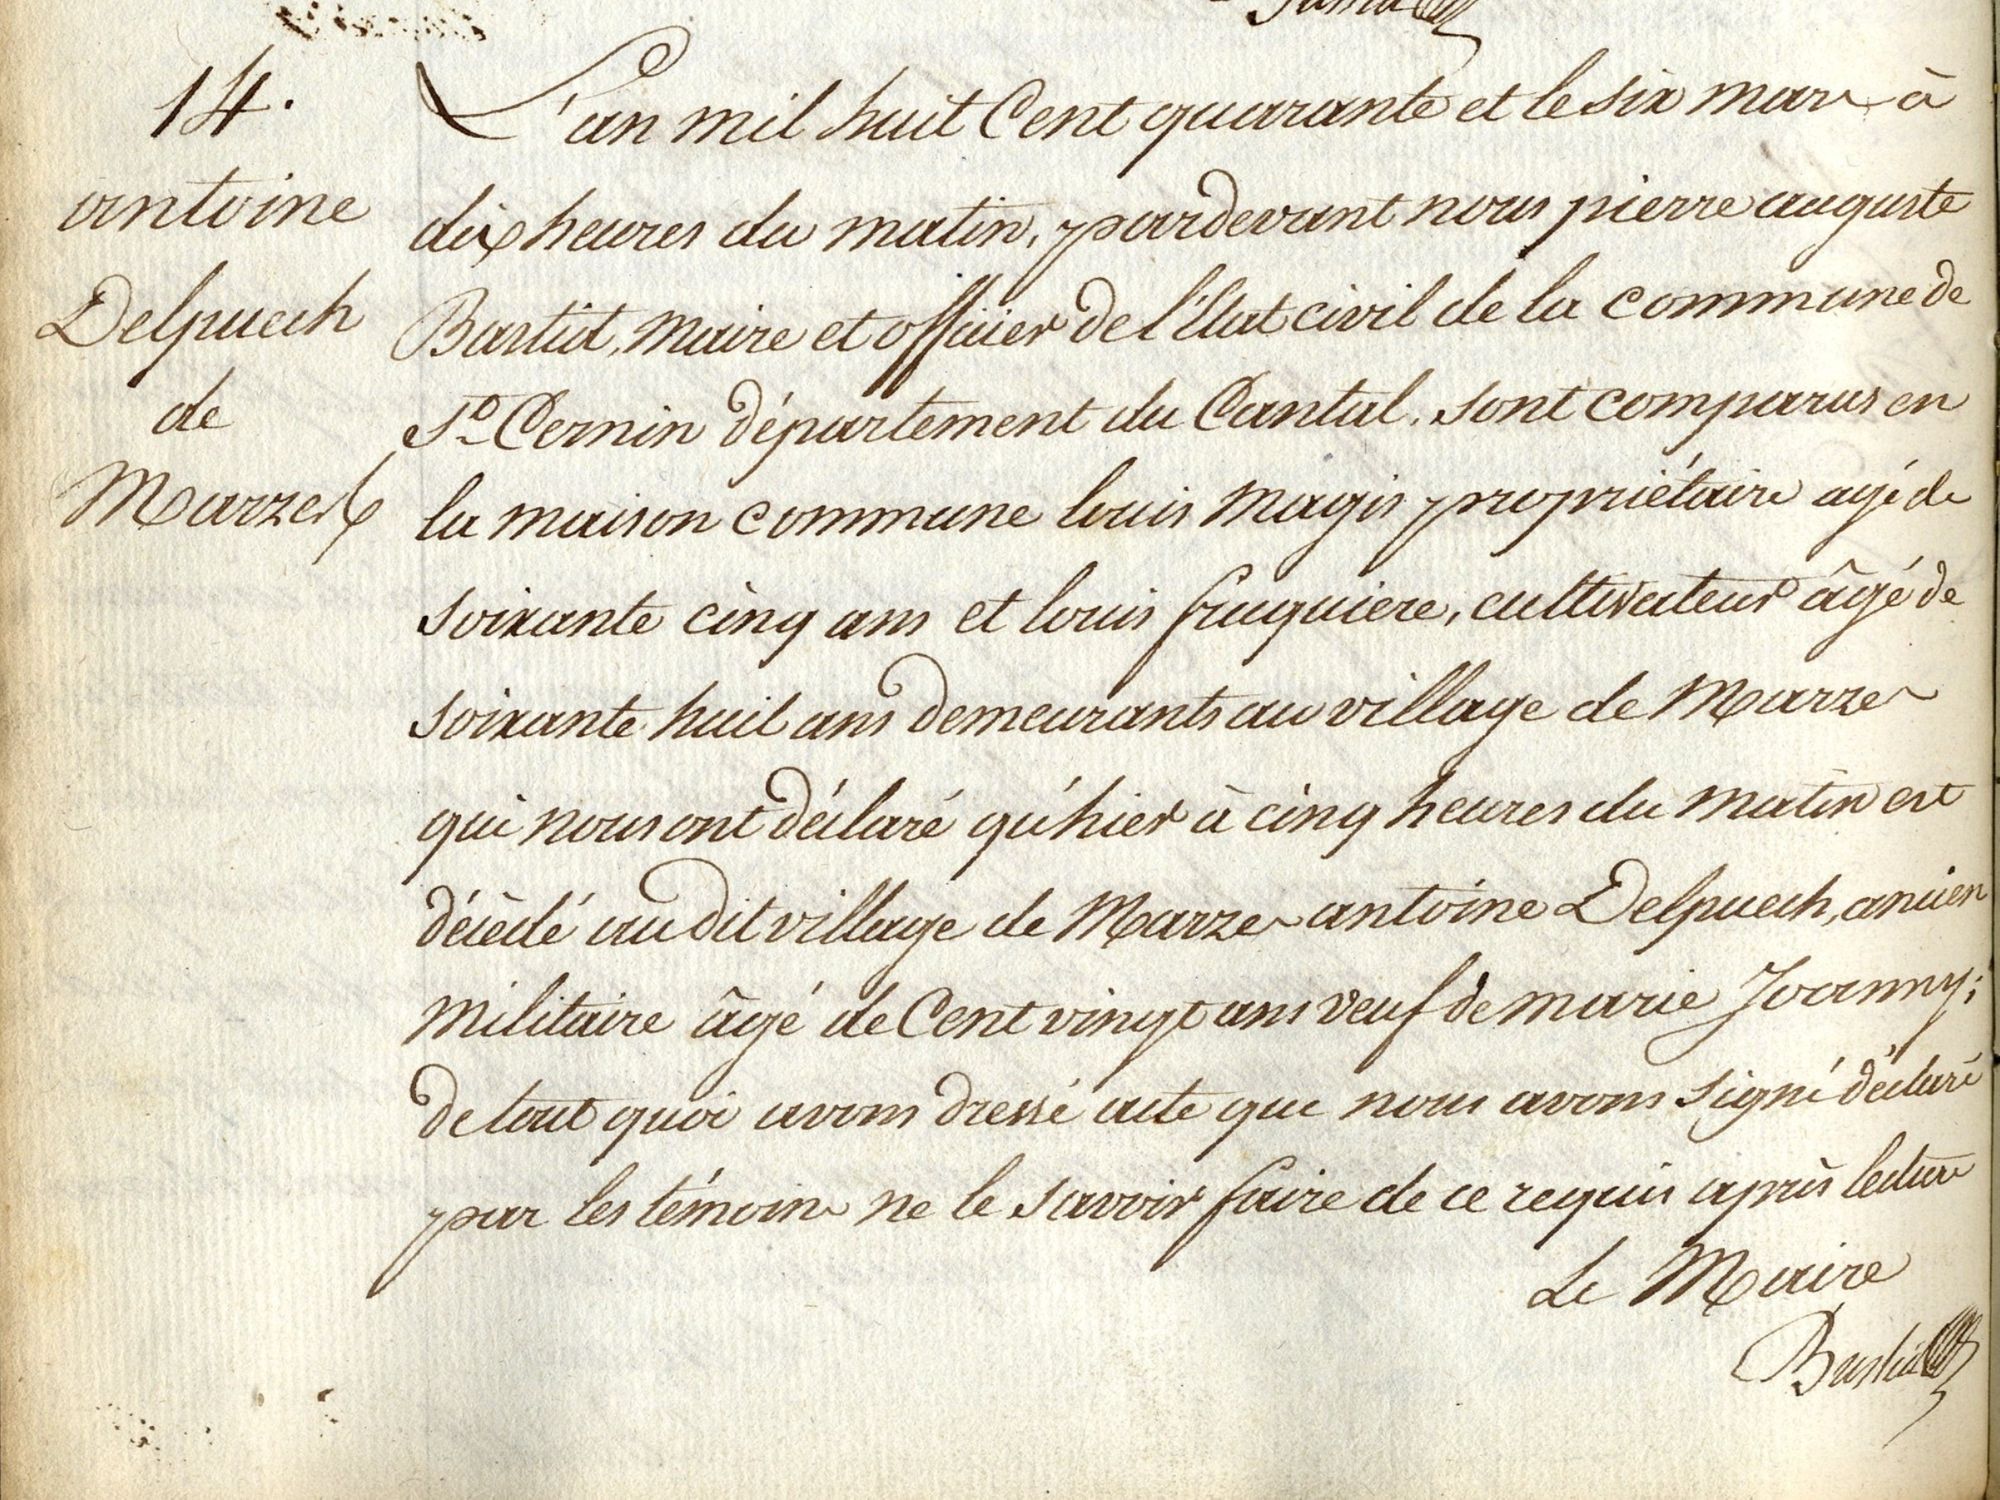 14.
antoine
Delpuech
de
Marzes
L'an mil huit Cent quarante et le six mars à
dix heures du matin, pardevant nous pierre auguste
Bastid, Maire et officier de l'Etat civil de la commune de
St. Cernin département du Cantal. sont comparus en
la maison commune louis Magis propriétaire agé de
soixante cinq ans et louis fruquiere, cultivateur âgé de
soixante huit ans demeurants au village de Marzes
qui nous ont déclaré qu'hier à cinq heures du matin est
décédé au dit village de Marzes antoine Delpuech, ancien
militaire âgé de Cent vingt ans veuf de marie Joanny;
de tout quoi avons dressé acte que nous avons signé déclaré
par les témoins ne le savoir faire de ce requis après lecture
Le Maire
Bastid